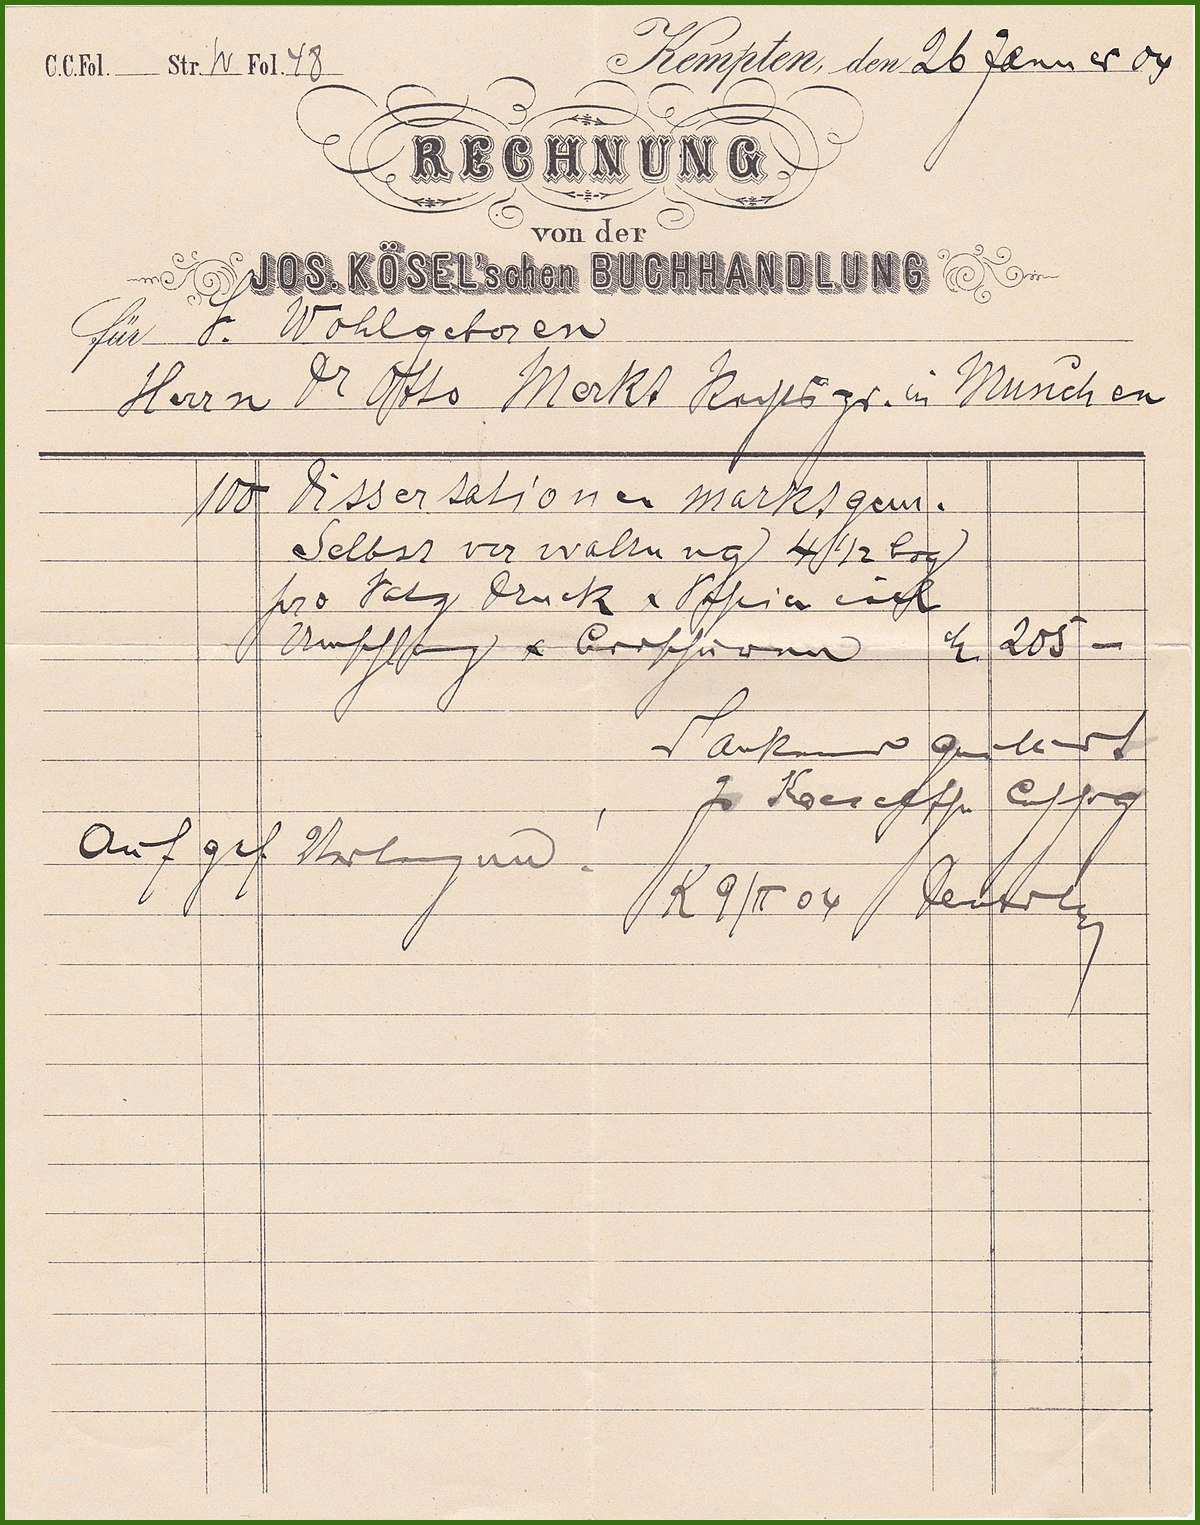 C.C.Fol. Str. IV Fol. 48
Kempten, den 26 Jänner 04
RECHNUNG
von der
JOS. KÖSEL'schen BUCHHANDLUNG
für S. Wohlgeboren
Herrn Dr Otto Merkt in München
100 Dissertationen marktgem.
Selbstverwaltung 4 1/2 bog
pro Satz Druck & Papier incl
Umschlag & Broschüren M. 205 –
Dankend quittiert
Auf gef. Verlangen!
K 9/II 04